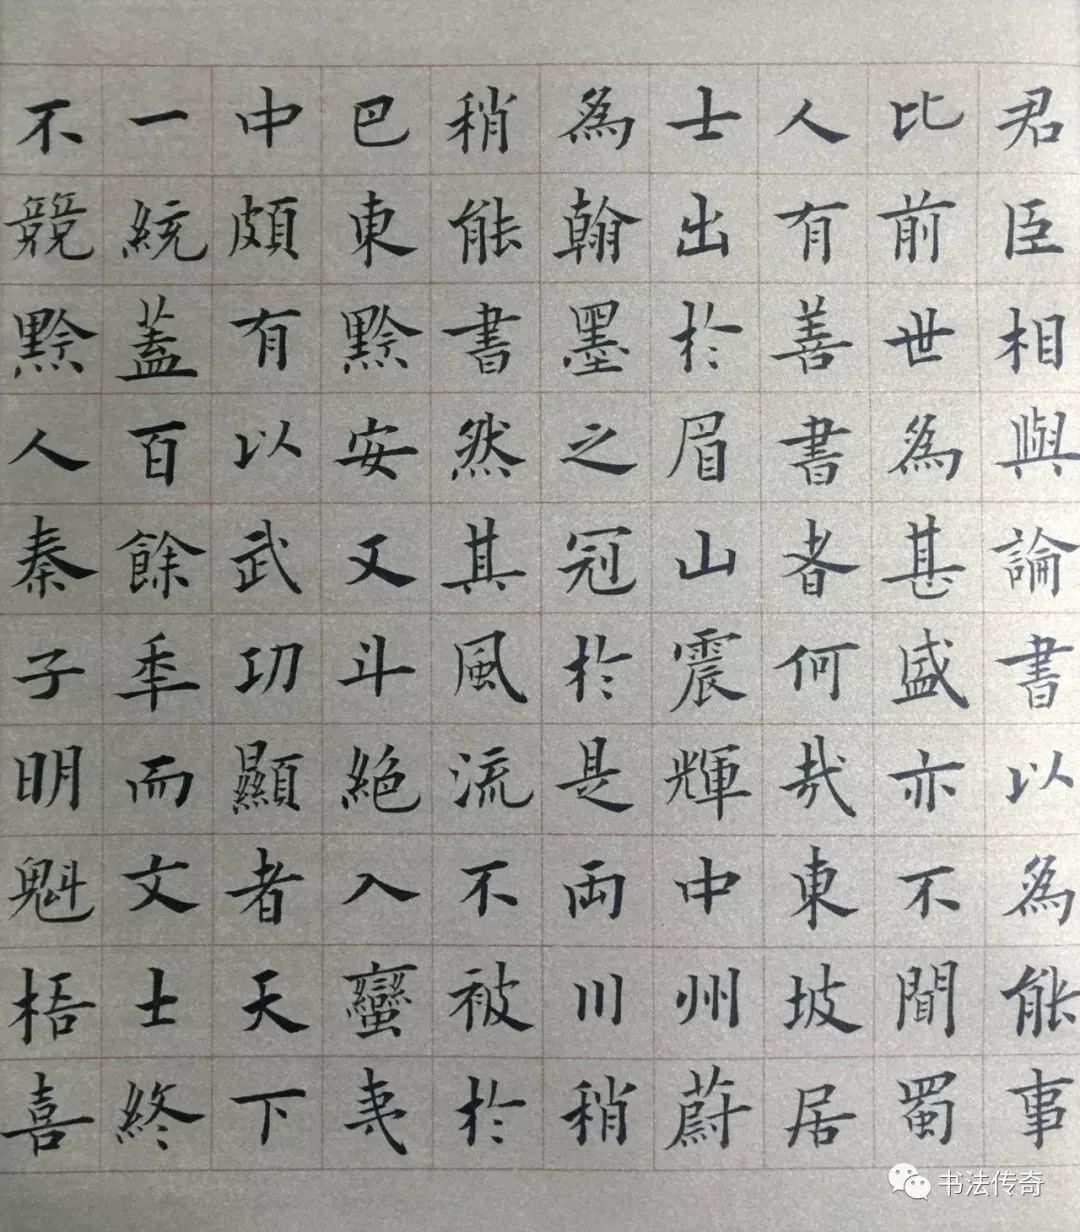 君臣相與論書以為能事
比前世為甚盛亦不聞蜀
人有善書者何哉東坡居
士出於眉山震輝中州蔚
為翰墨之冠於是兩川稍
稍能書然其風流不被於
巴東黔安又斗絕入蠻夷
中頗有以武功顯者天下
一統蓋百餘年而文士終
不競黔人秦子明魁梧喜
书法传奇